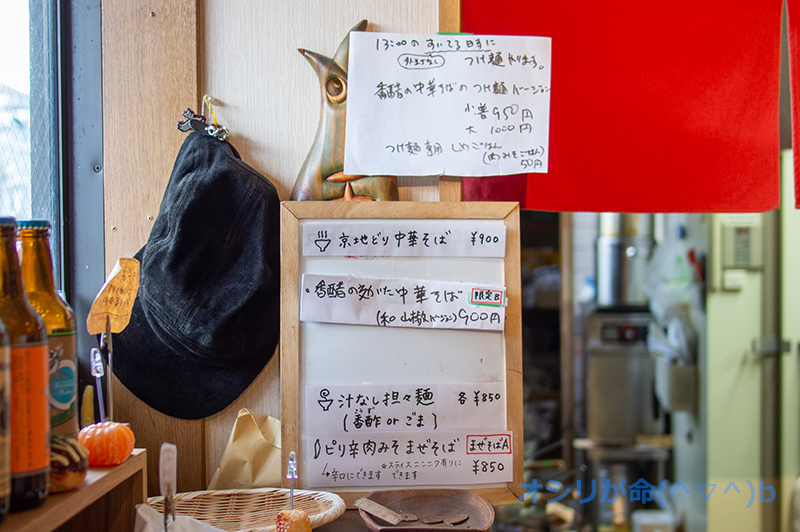 13:00の すいてる日寺に
つけ麺 やります。
香酢の中華そばの つけ麺バージョン
小普 950円
大 1000円
つけ麺 専用 しめごはん
50円
京地どり 中華そば ¥900
・香酢の効いた中華そば 限定B
(和山椒バージョン) 900円
汁なし担々麺 各 ¥850
(香酢 or ごま)
ピリ辛肉みそまぜそば まぜそばA
☆スライスニンニク有りに
↳辛口にできます できます ¥850
オンリが命(^▽^)b